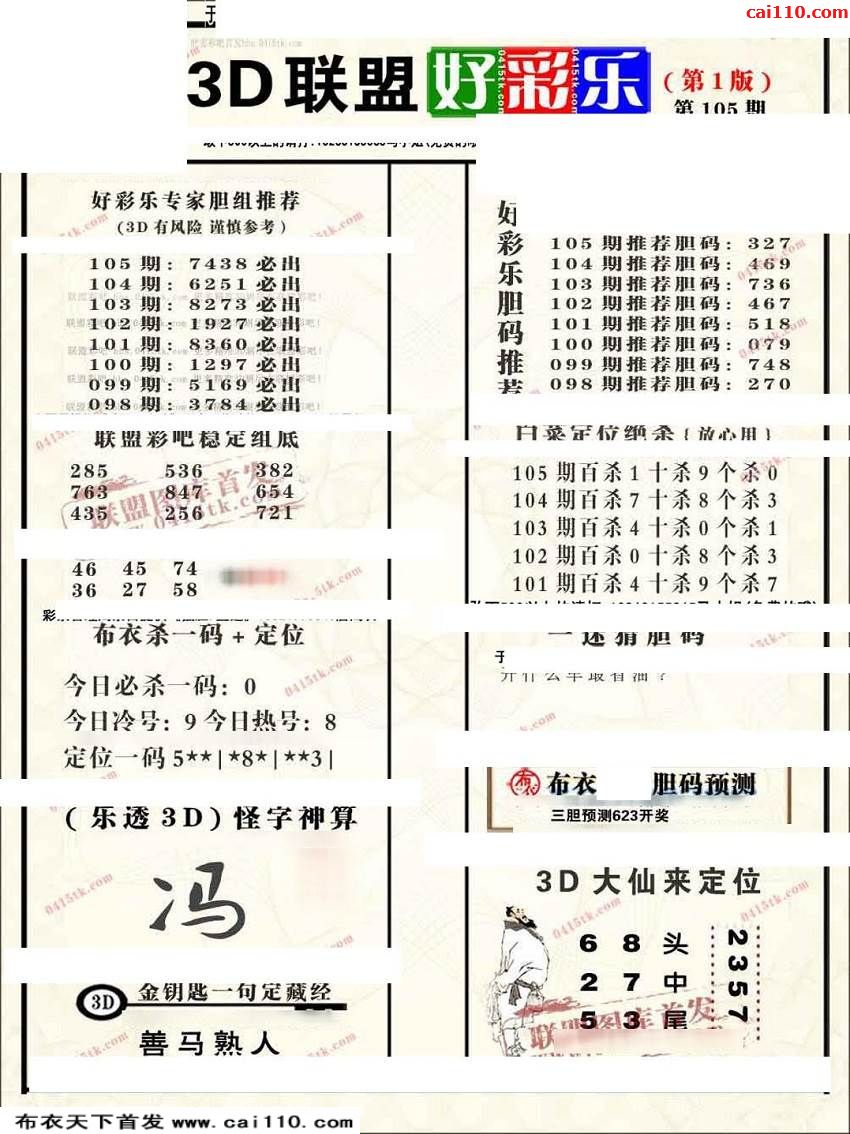 cai110.com
3D联盟好彩乐
(第1版)
第105期
好彩乐专家胆组推荐
(3D有风险 谨慎参考)
105期: 7438必出
104期: 6251必出
103期: 8273必出
102期: 1927必出
101期: 8360必出
100期: 1297必出
099期: 5169必出
098期: 3784必出
联盟彩吧稳定组底
285 536 382
763 847 654
435 256 721
46 45 74
36 27 58
布衣杀一码+定位
今日必杀一码: 0
今日冷号: 9 今日热号: 8
定位一码5**|*8*|**3|
(乐透3D)怪字神算
冯
3D 金钥匙一句定藏经
善马熟人
好彩乐胆码推荐
105期推荐胆码: 327
104期推荐胆码: 469
103期推荐胆码: 736
102期推荐胆码: 467
101期推荐胆码: 518
100期推荐胆码: 079
099期推荐胆码: 748
098期推荐胆码: 270
白菜定位绝杀{放心用}
105期百杀1十杀9个杀0
104期百杀7十杀8个杀3
103期百杀4十杀0个杀1
102期百杀0十杀8个杀3
101期百杀4十杀9个杀7
一迷猜胆码
布衣 胆码预测
三胆预测623开奖
3D大仙来定位
6 8 头
2 7 中
5 3 尾
2357
联盟图库首发
0415tk.com
布衣天下首发 www.cai110.com